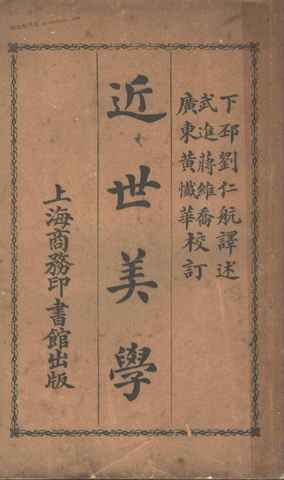 下邳劉仁航譯述
武進蔣維喬
廣東黃懺華校訂
近世美學
上海商務印書館出版